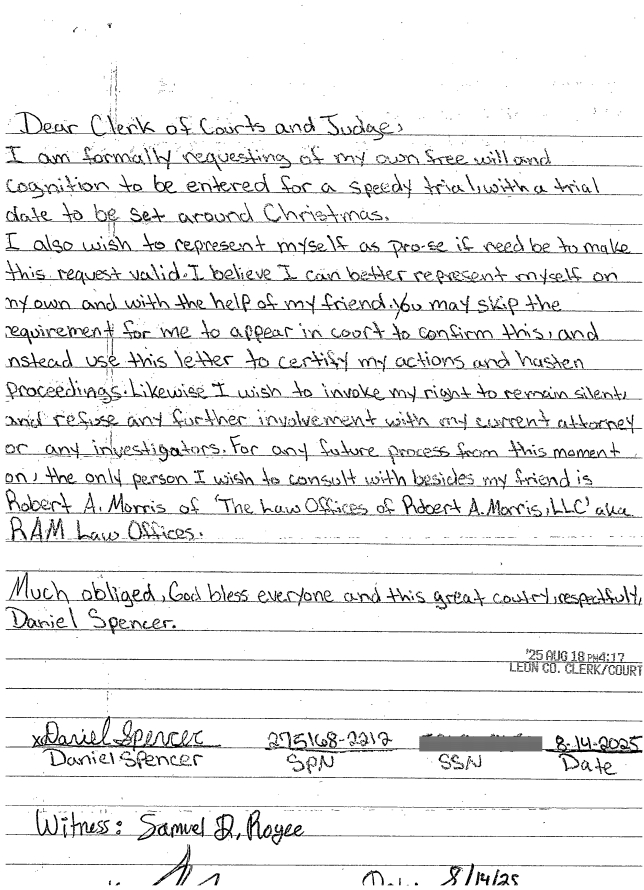 Dear Clerk of Courts and Judge,
I am formally requesting of my own free will and
cognition to be entered for a speedy trial, with a trial
date to be set around Christmas.
I also wish to represent myself as pro-se if need be to make
this request valid. I believe I can better represent myself on
my own and with the help of my friend. You may skip the
requirement for me to appear in court to confirm this, and
nstead use this letter to certify my actions and hasten
proceedings. Likewise I wish to invoke my right to remain silent,
and refuse any further involvement with my current attorney
or any investigators. For any future process from this moment
on, the only person I wish to consult with besides my friend is
Robert A. Morris of 'The Law Offices of Robert A. Morris, LLC' aka
RAM Law Offices.
Much obliged, God bless everyone and this great coutry, respectfully,
Daniel Spencer.
'25 AUG 18 PM4:17
LEON CO. CLERK/COURT
xDaniel Spencer 275168-2212 8-14-2025
Daniel Spencer SPN SSN Date
Witness: Samuel D,
Date: 8/14/25